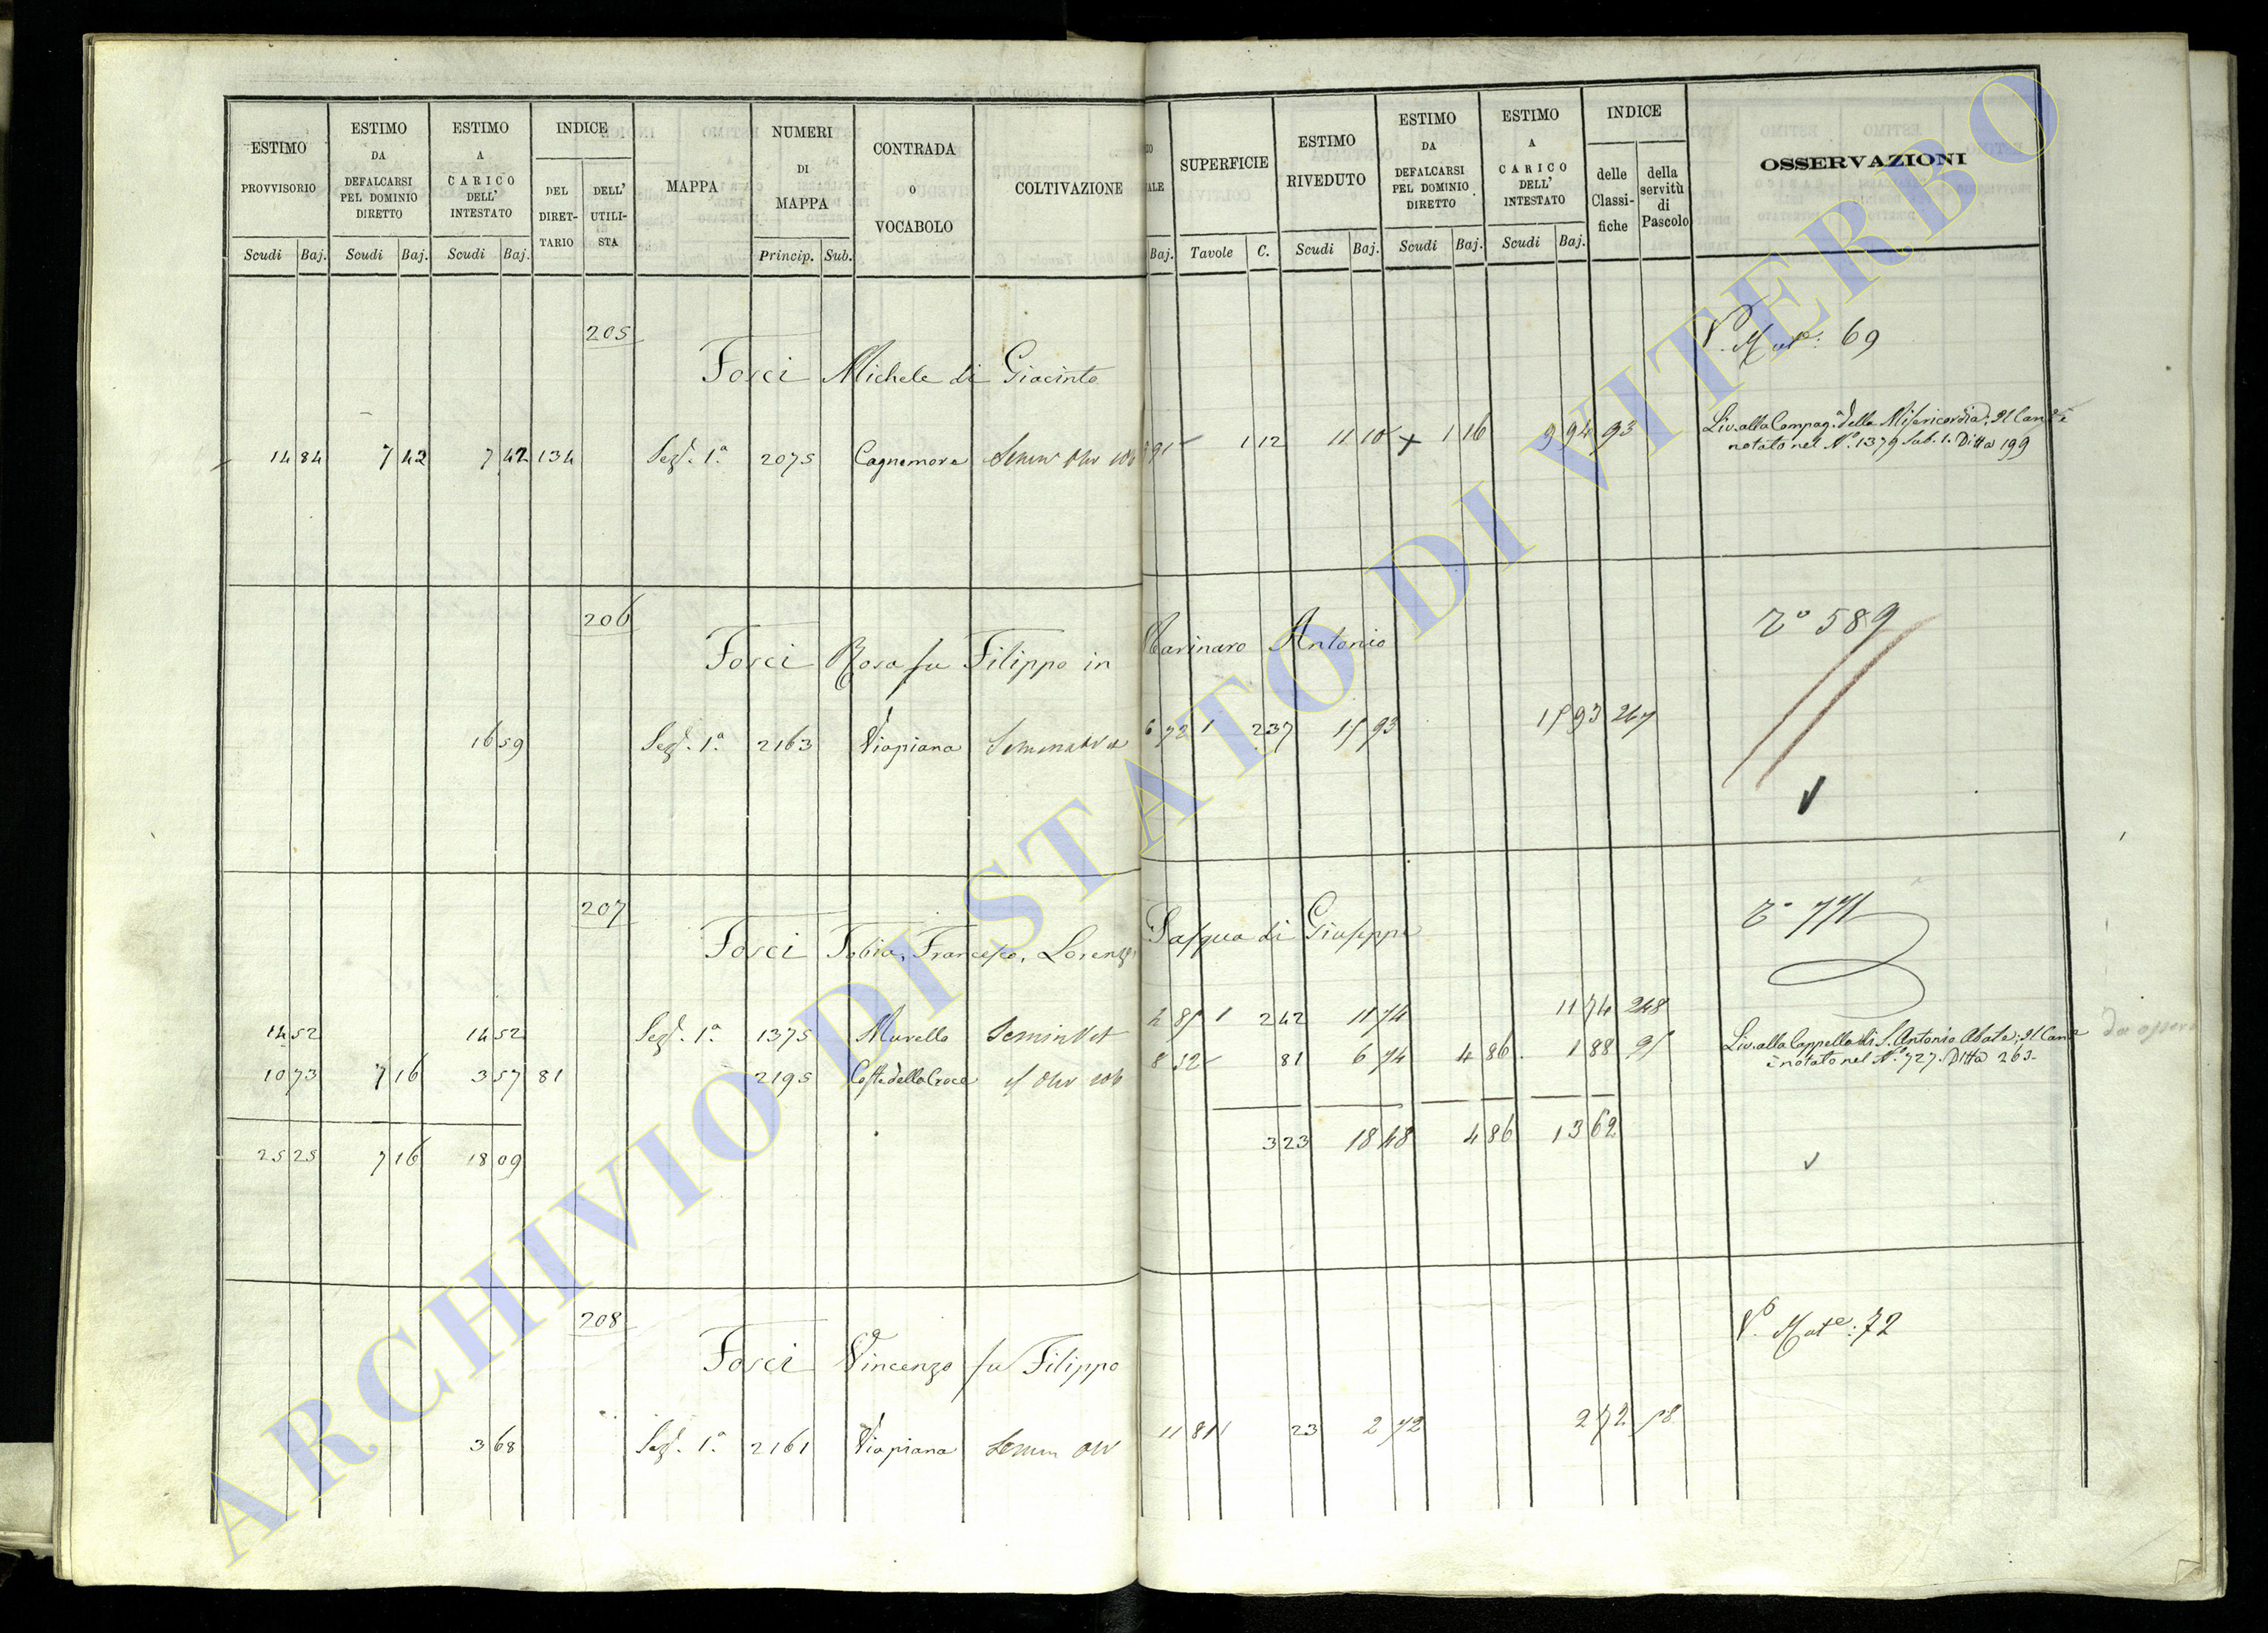 ESTIMO PROVVISORIO
ESTIMO DA DEFALCARSI PEL DOMINIO DIRETTO
ESTIMO A CARICO DELL' INTESTATO
INDICE
DEL DIRET- TARIO
DELL' UTILI- STA
MAPPA
NUMERI DI MAPPA
CONTRADA O VOCABOLO
COLTIVAZIONE
SUPERFICIE
ESTIMO RIVEDUTO
ESTIMO DA DEFALCARSI PEL DOMINIO DIRETTO
ESTIMO A CARICO DELL' INTESTATO
INDICE
delle Classi- fiche
della servitù di Pascolo
OSSERVAZIONI
Scudi Baj. Scudi Baj. Scudi Baj. Princip. Sub. Baj. Tavole C. Scudi Baj. Scudi Baj. Scudi Baj.
205
Fosci Michele di Giacinto
69
14 84 7 42 7 42 134 Sez. 1ª 2075 Cagnemora 1 12 11 10 1 16 9 94 93
Liv. alla Compag. della Misericordia; Il Can. è
notato nel N.º 1379 Sub. 1. Ditta 199
206
Fosci Rosa fu Filippo in Marinaro Antonio
rº 589
16 59 Sez. 1ª 2163 Viapiana Seminativo 6 72 2 37 15 93 15 93 267
207
Fosci Tobia, Francesco, Lorenzo, Pasqua di Giuseppe
rº 771
14 52 14 52 Sez. 1ª 1375 Murella 2 42 11 74 11 74 248
10 73 7 16 3 57 81 2195 Coste della Croce 81 6 74 4 86 1 88
Liv. alla Cappella di S. Antonio Abate; Il Can.
è notato nel N.º 727. Ditta 263
25 25 7 16 18 09 3 23 18 48 4 86 13 62
208
Fosci Vincenzo fu Filippo
72
3 68 Sez. 1ª 2161 Viapiana 23 2 72 2 72
ARCHIVIO DI STATO DI VITERBO